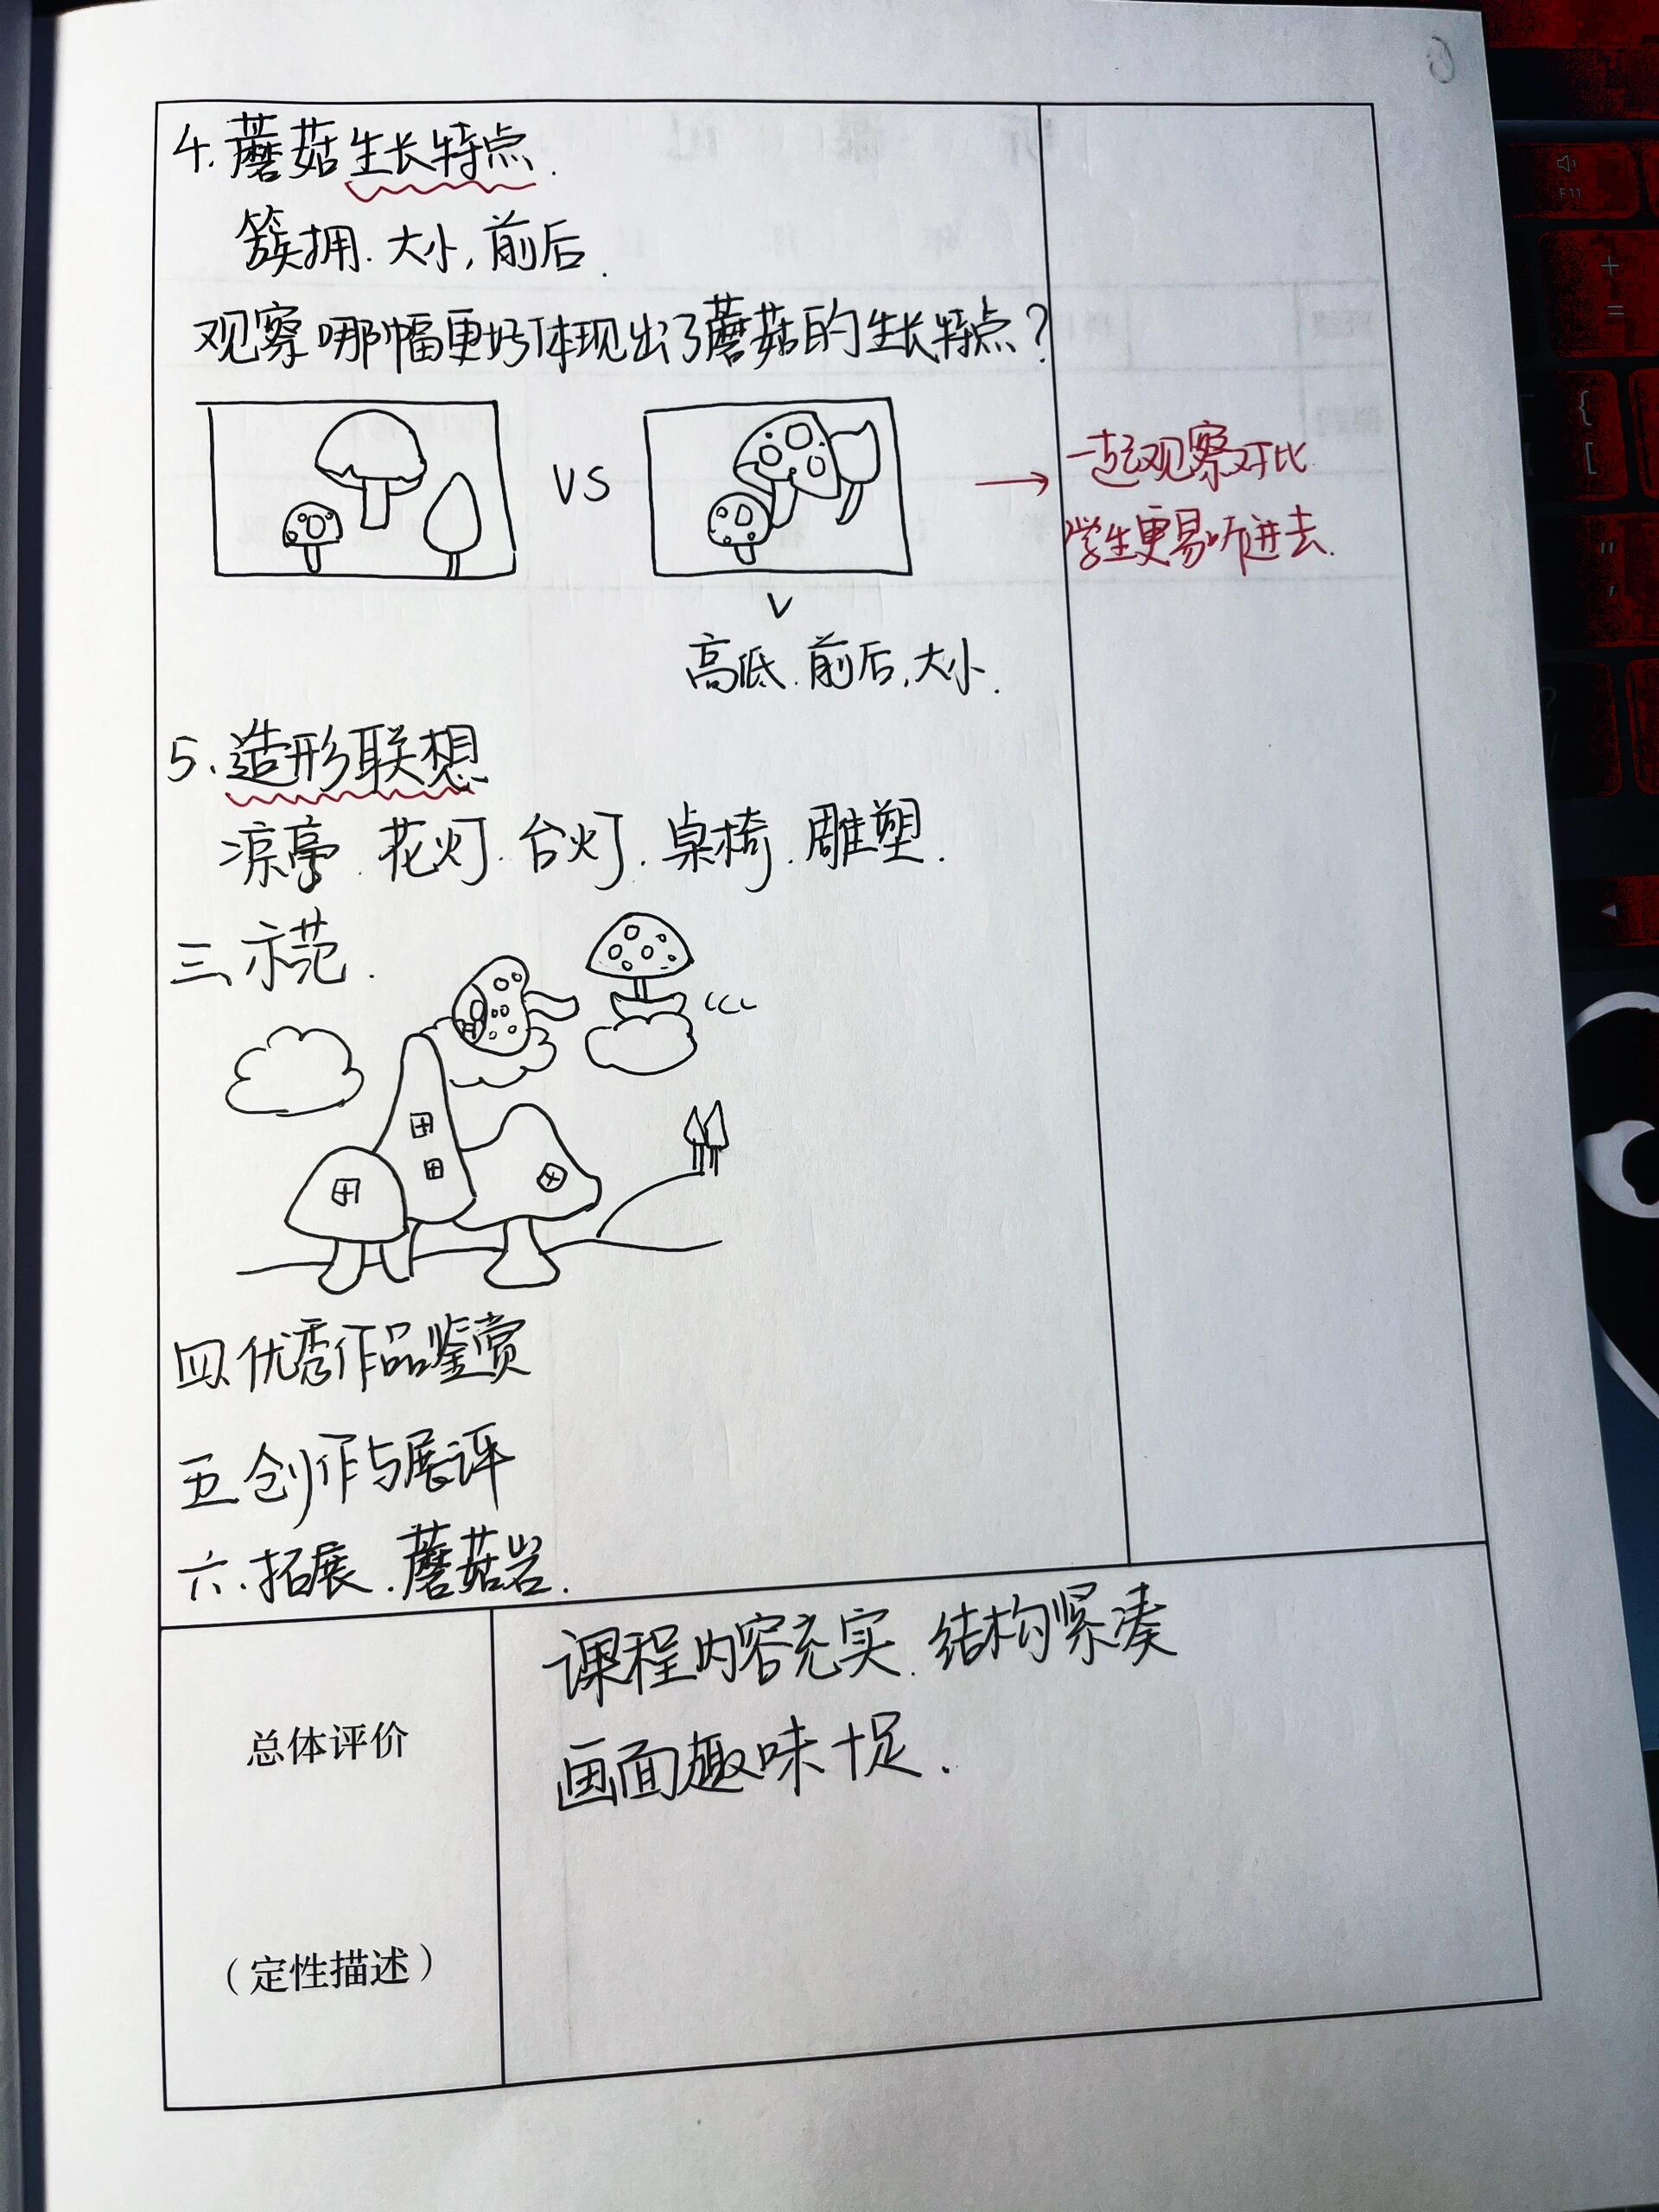 4.蘑菇生长特点.
簇拥.大小,前后.
观察哪幅更好体现出了蘑菇的生长特点?
VS
一起观察对比
学生更易听进去.
高低.前后,大小.
5.造形联想
凉亭.花灯.台灯.桌椅.雕塑.
三、示范.
四、优秀作品鉴赏
五、创作与展评
六.拓展.蘑菇岩.
课程内容充实.结构紧凑
画面趣味十足.
总体评价
(定性描述)
F11
+
=
{
[
"
,